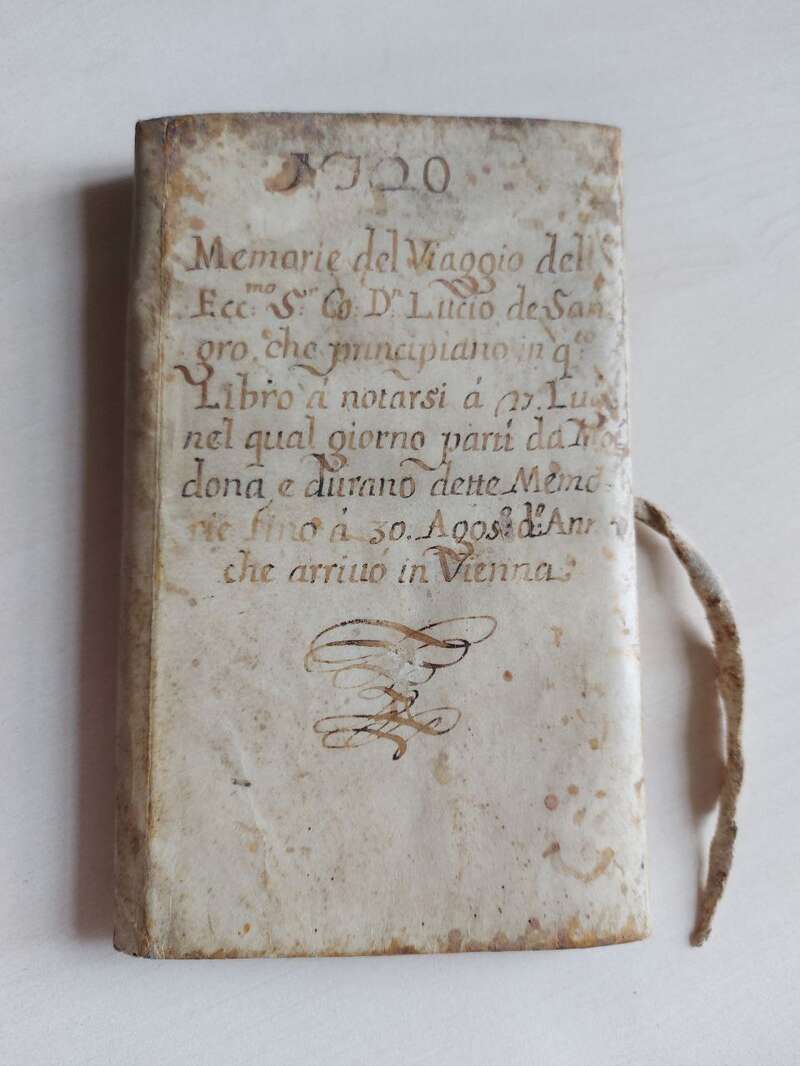 1720
Memorie del Viaggio dell
Ecc:mo Sr Co: Dn Lucio de San
gro, che principiano in q.to
Libro á notarsi á
nel qual giorno partí da Mo
dona, e durano dette Memo
rie fino á 30. Agos:o d:o Anno
che arriuó in Vienna.